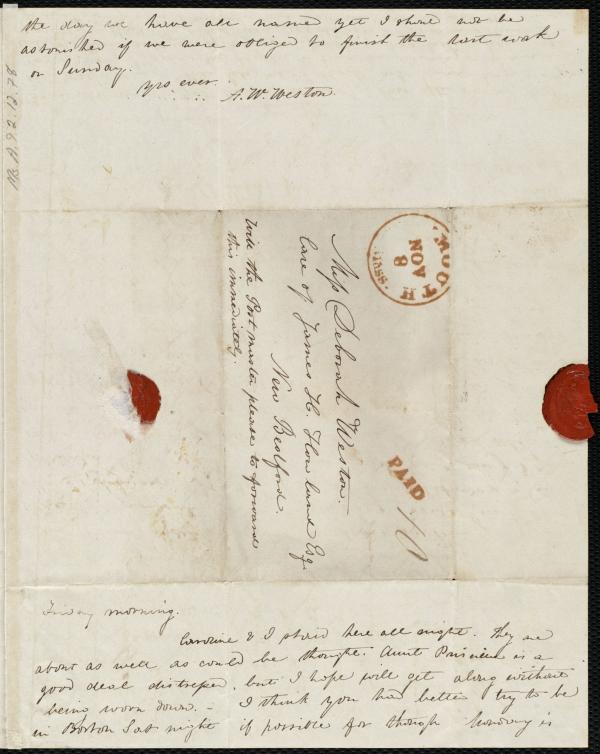 the day we have all named yet I should not be
astonished if we were obliged to finish the last work
on Sunday.
Yrs ever
A. W. Weston.
MS. A. 9.2. 12. 78
MOUTH
NOV
8
MASS.
Miss Deborah Weston.
Care of James H. Howland Esq.
New Bedford.
Will the Post master please to forward
this immediately.
PAID
10
Friday morning.
Caroline & I staid here all night. They are
about as well as could be thought. Aunt Priscilla is a
good deal distressed, but I hope will get along without
being worn down. – I think you had better try to be
in Boston Sat night if possible for though Monday is